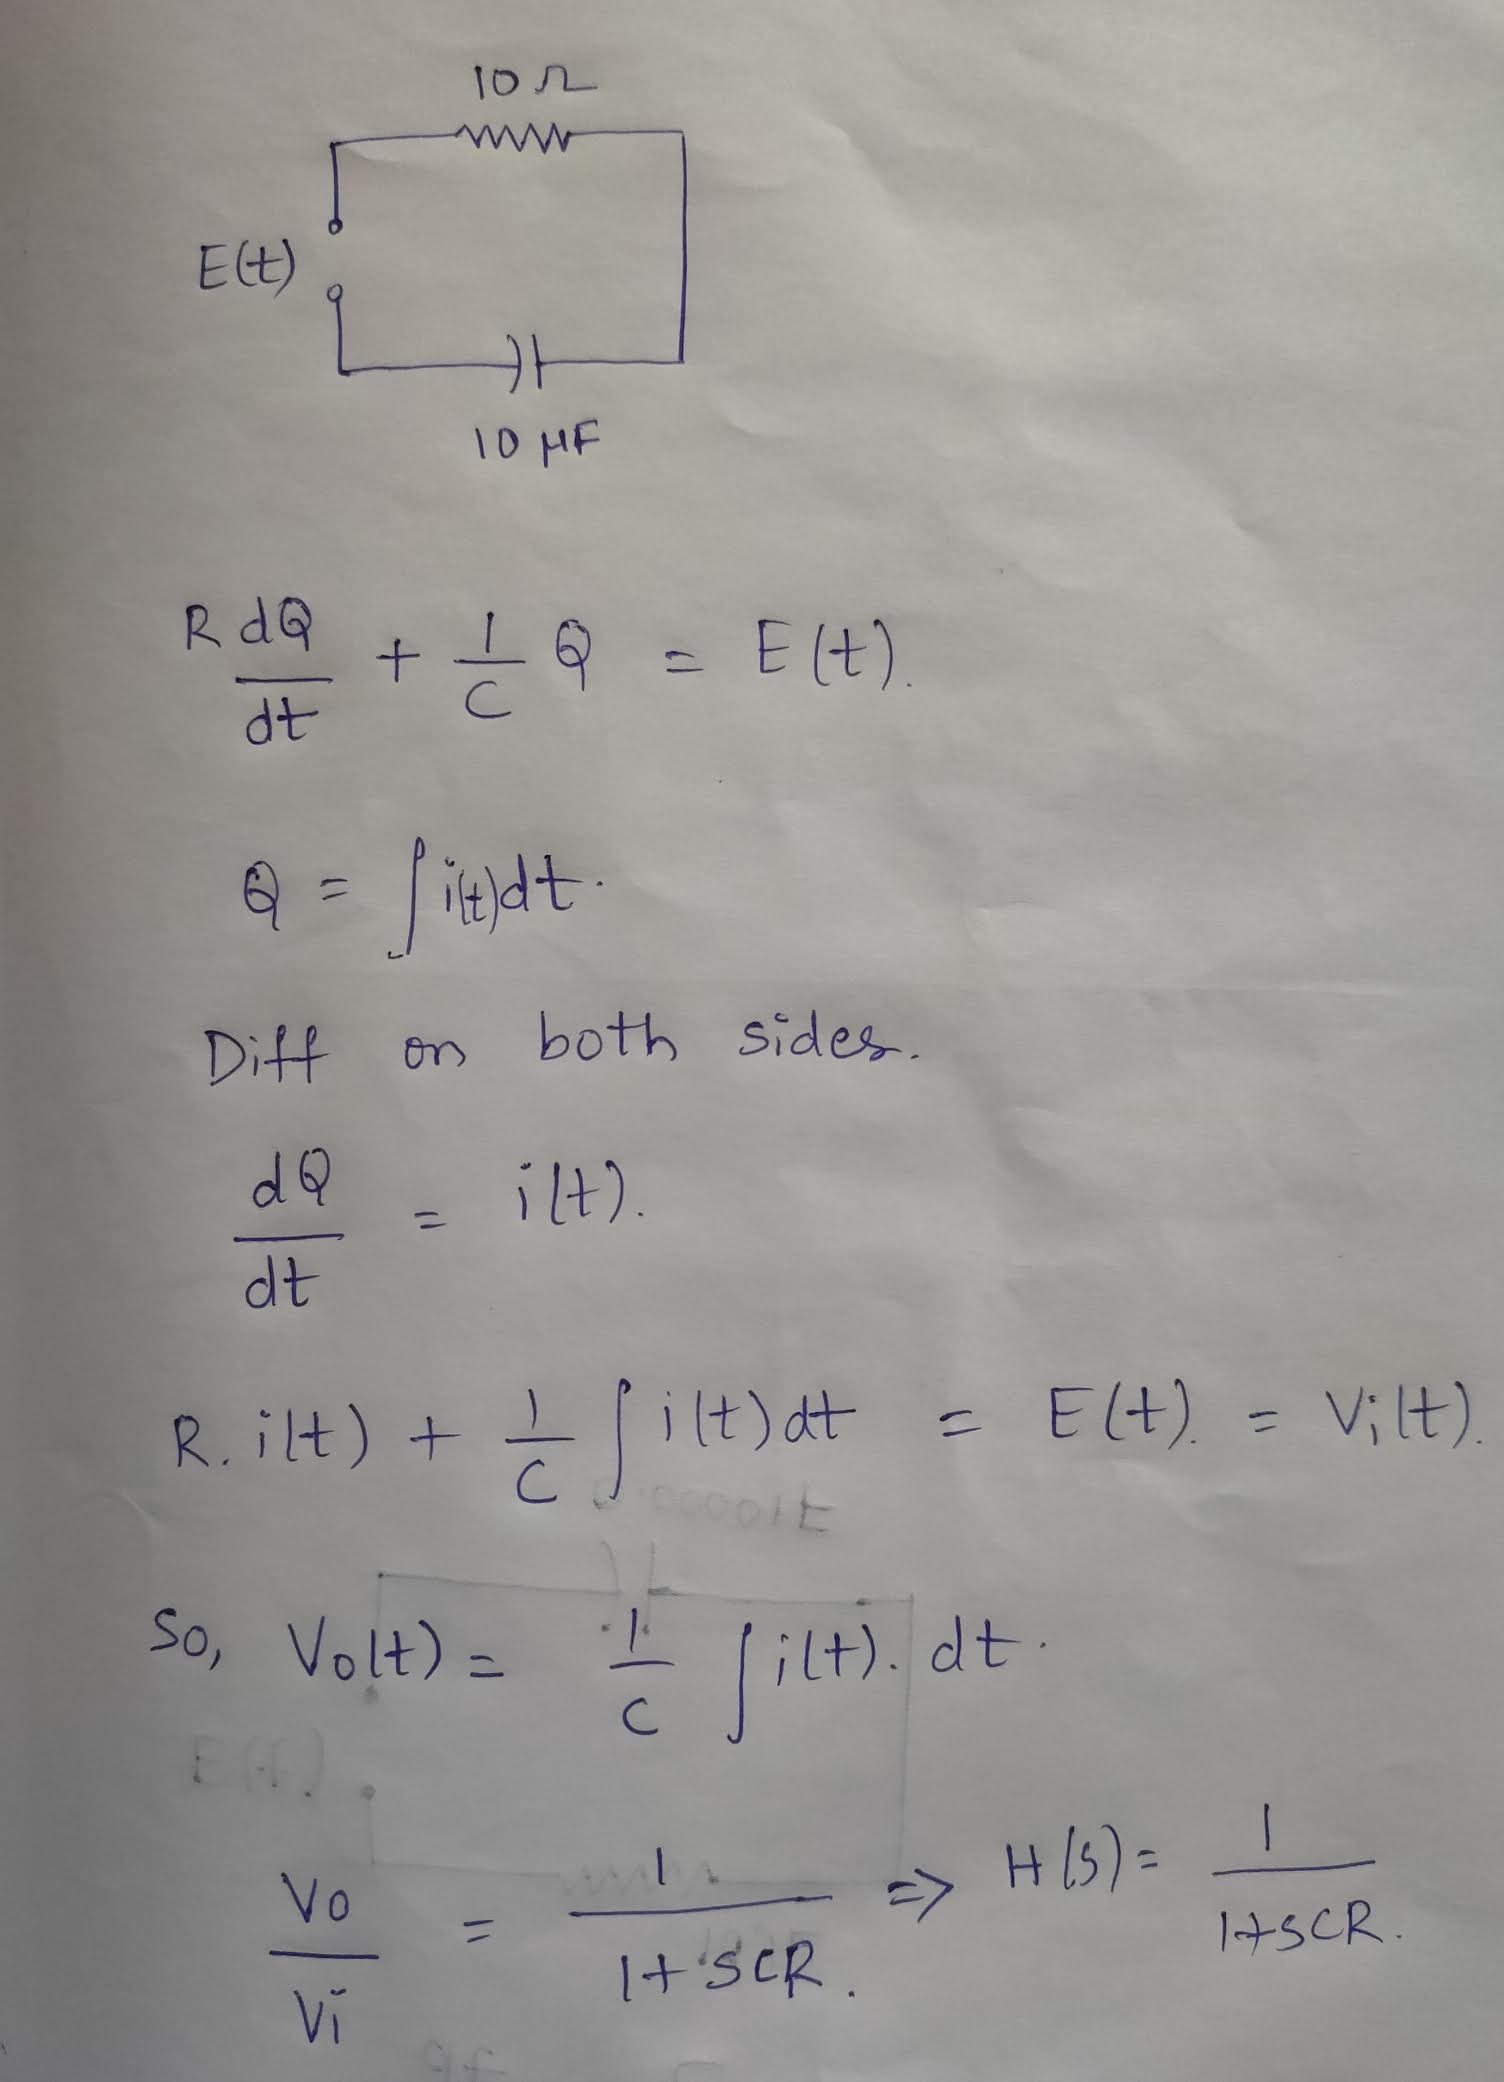 10 Ω
E(t)
10 μF
R dQ/dt + 1/C Q = E(t).
Q = ∫i(t)dt.
Diff on both sides.
dQ/dt = i(t).
R. i(t) + 1/C ∫i(t)dt = E(t). = Vi(t).
So, Vo(t) = 1/C ∫i(t). dt.
Vo/Vi = 1/1+SCR. => H(S) = 1/1+SCR.